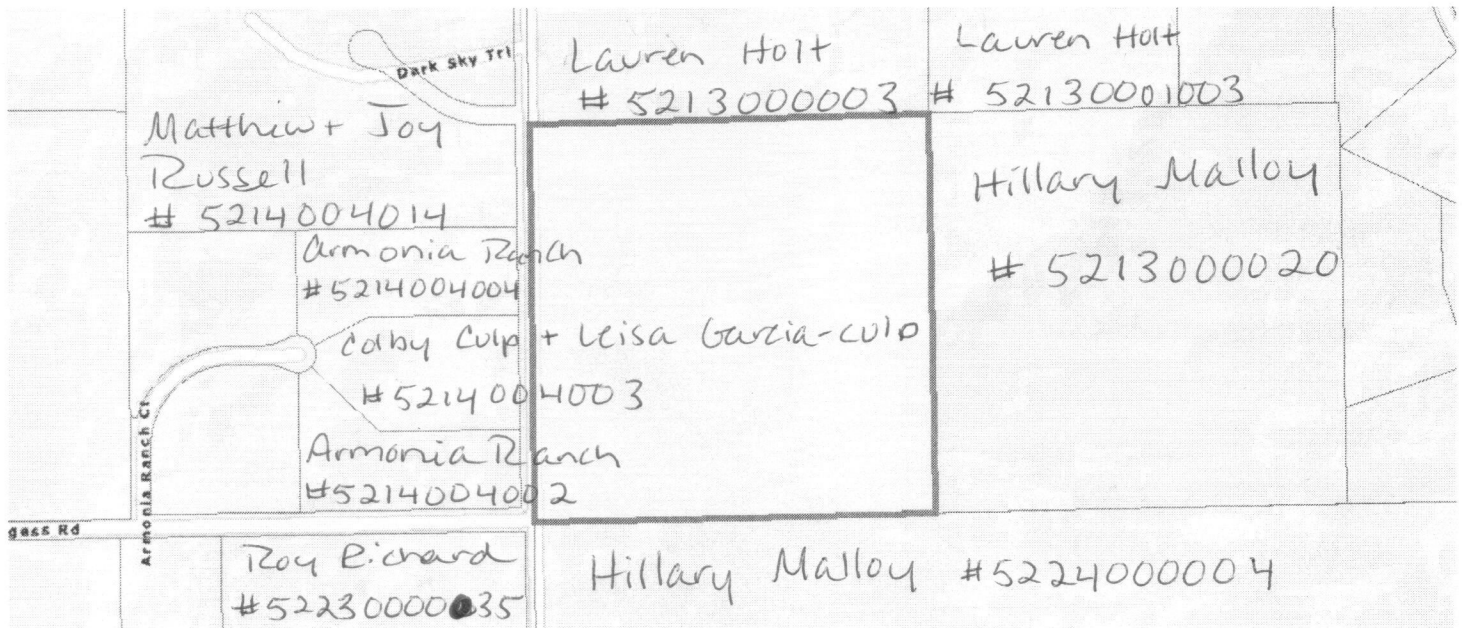 Dark Sky Trl
Lauren Holt
# 5213000003
Lauren Holt
# 52130001003
Matthew + Joy
Russell
# 5214004014
Hillary Malloy
# 5213000020
Armonia Ranch
#5214004004
Colby Culp + Leisa Garcia-culp
#5214004003
Armonia Ranch
#5214004002
Armonia Ranch Ct
gess Rd
Roy Richard
Hillary Malloy #5224000004